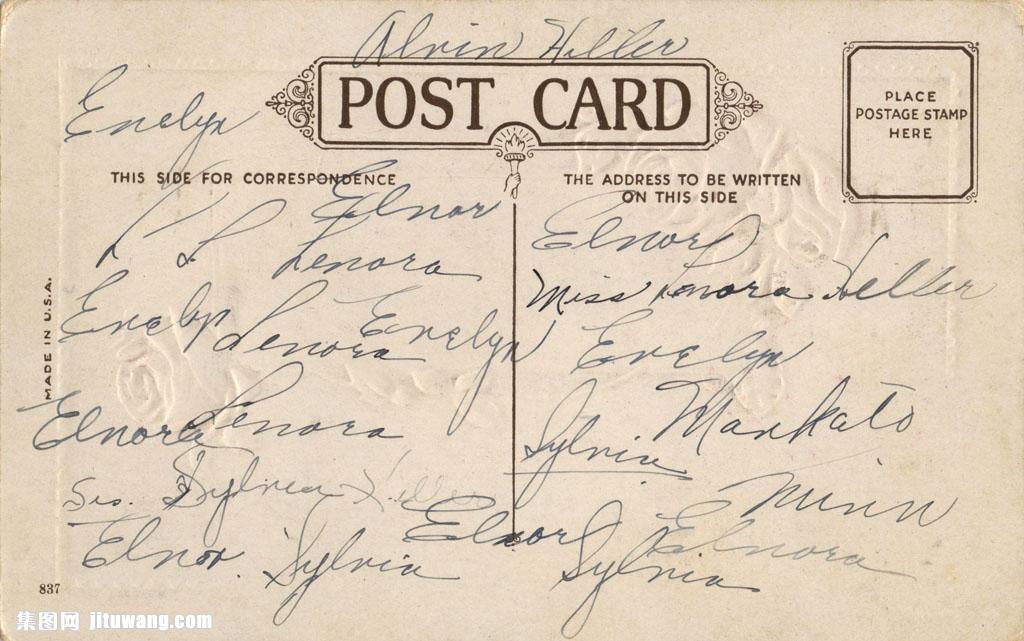 Alvin Heller
POST CARD
PLACE
POSTAGE STAMP
HERE
Evelyn
THIS SIDE FOR CORRESPONDENCE
THE ADDRESS TO BE WRITTEN
ON THIS SIDE
Elnor
L L Lenora
Elnor
Miss Lenora Heller
MADE IN U.S.A.
Evelyn Lenora Evelyn
Evelyn
Elnora Lenora
Mankato
Sylvia
Sylvia
Minn
Elnor Sylvia Elnor
Sylvia Elnora
837
集图网 jituwang.com